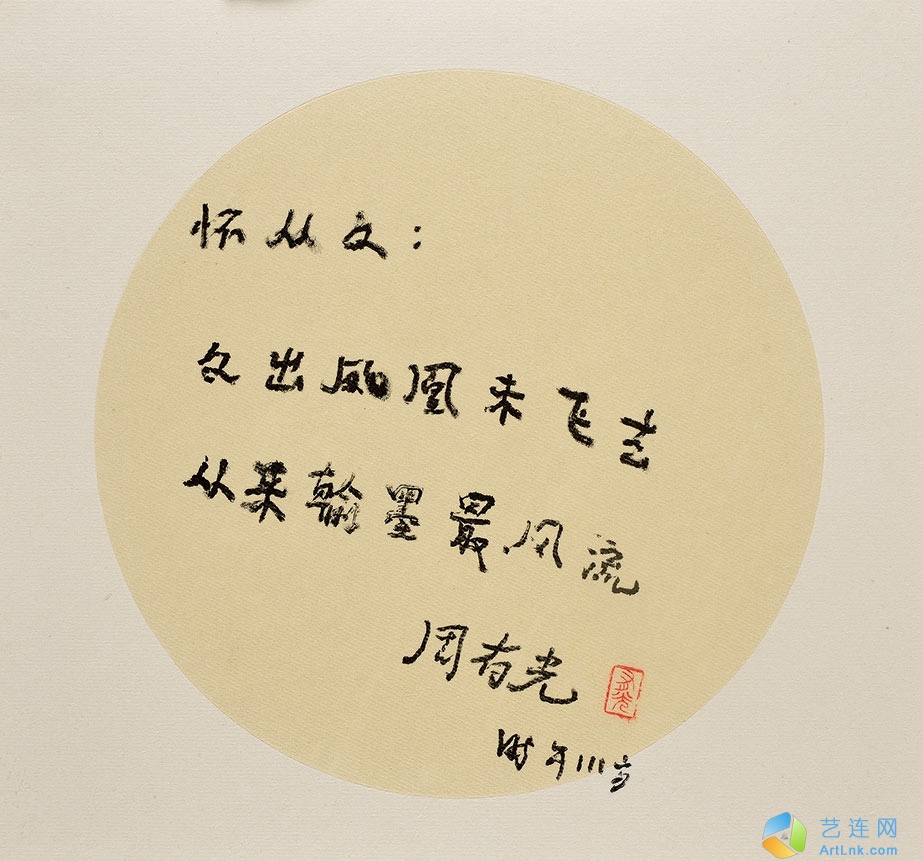 怀从文:
文出凤凰未飞去
从来翰墨最风流
周有光
有光
时年111岁
艺连网
ArtLnk.com